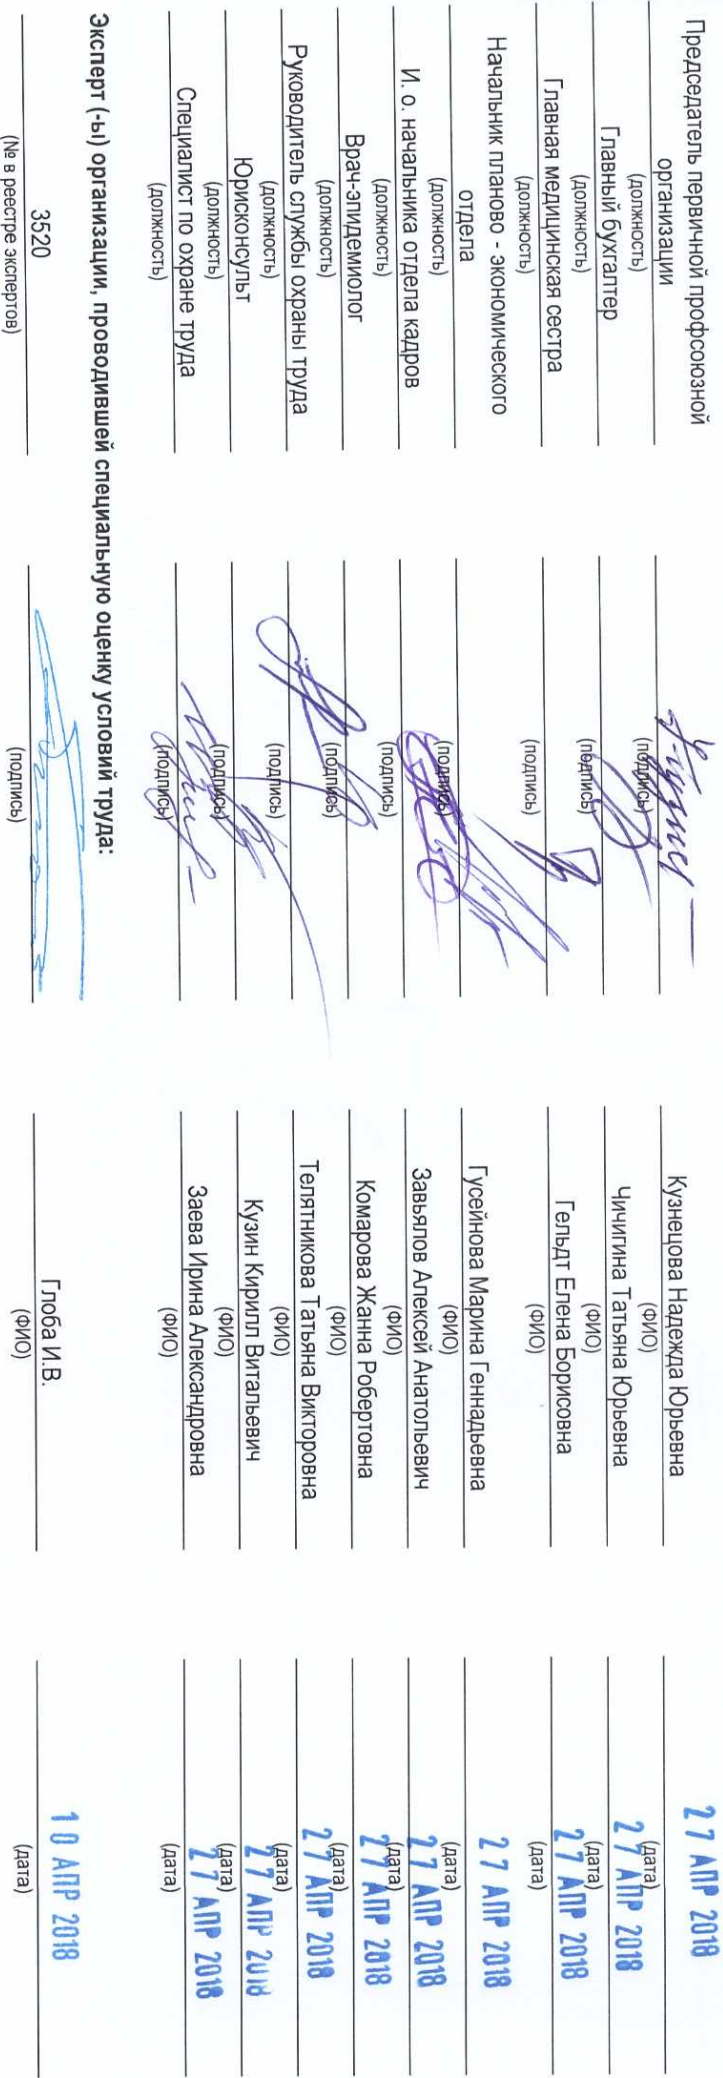 Председатель первичной профсоюзной
организации Кузнецова Надежда Юрьевна 27 АПР 2018
(должность) (подпись) (ФИО) (дата)
Главный бухгалтер Чичигина Татьяна Юрьевна 27 АПР 2018
(должность) (подпись) (ФИО) (дата)
Главная медицинская сестра Гельдт Елена Борисовна 27 АПР 2018
(должность) (подпись) (ФИО) (дата)
Начальник планово - экономического
отдела Гусейнова Марина Геннадьевна 27 АПР 2018
(должность) (подпись) (ФИО) (дата)
И. о. начальника отдела кадров Завьялов Алексей Анатольевич 27 АПР 2018
(должность) (подпись) (ФИО) (дата)
Врач-эпидемиолог Комарова Жанна Робертовна 27 АПР 2018
(должность) (подпись) (ФИО) (дата)
Руководитель службы охраны труда Телятникова Татьяна Викторовна 27 АПР 2018
(должность) (подпись) (ФИО) (дата)
Юрисконсульт Кузин Кирилл Витальевич 27 АПР 2018
(должность) (подпись) (ФИО) (дата)
Специалист по охране труда Заева Ирина Александровна 27 АПР 2018
(должность) (подпись) (ФИО) (дата)
Эксперт (-ы) организации, проводившей специальную оценку условий труда:
3520 Глоба И.В. 10 АПР 2018
(№ в реестре экспертов) (подпись) (ФИО) (дата)